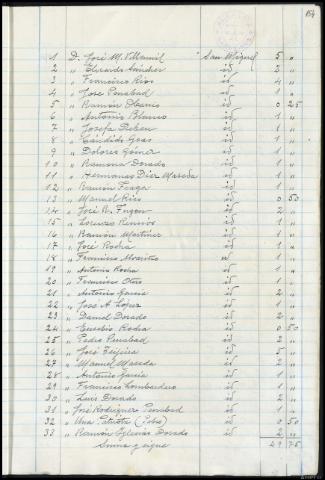 154
1 D. José M. Villamil " San Miguel 5 "
2 " Eduardo Sánchez id 2 "
3 " Francisco Rios id 4 "
4 " Jose Penabad id 1 "
5 " Ramón id 0 25
6 " Antonio Polanco id 1 "
7 " Josefa id 1 "
8 " Cándido Geas id 1 "
9 " Dolores Gómez id 1 "
10 " Ramona Dorado id 1 "
11 " Hermanas Diez Maseda id 1 "
12 " Ramón Fraga id 1 "
13 " Manuel Rico id 0 50
14 " José R. id 2 "
15 " Lorenzo id 1 "
16 " Ramón Martinez id 1 "
17 " José Rocha id 1 "
18 " Francisco id 1 "
19 " Antonio Rocha id 1 "
20 " Francisco Otero id 1 "
21 " Antonio Garcia id 2 "
22 " José A. Lopez id 1 "
23 " Daniel Dorado id 2 "
24 " Eusebio Rocha id 0 50
25 " Pedro Penabad id 2 "
26 " José Teijeira id 5 "
27 " Manuel Maseda id 2 "
28 " Antonio Garcia id 1 "
29 " Francisco Lombardero id 1 "
30 " Luis Dorado id 2 "
31 " José Rodriguez Penabad id 1 "
32 " Una Patriota (Coba) id 0 50
33 " Ramón Iglesias Dorado id 2 "
Suma y sigue 49 75